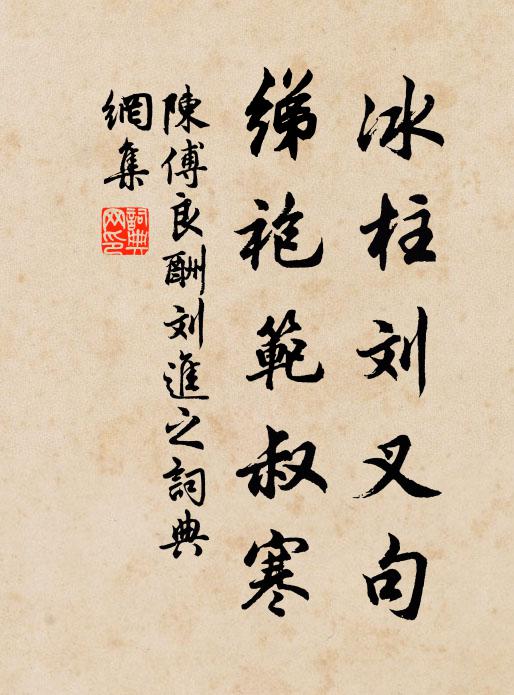 冰柱刘叉句
绨袍範叔寒
陳傅良酬刘進之詞典
網集
詞典網印